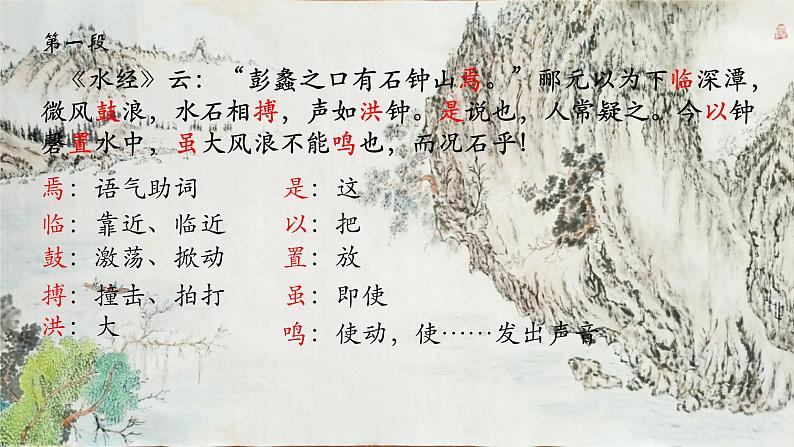 第一段
《水经》云：“彭蠡之口有石钟山焉。”郦元以为下临深潭，
微风鼓浪，水石相搏，声如洪钟。是说也，人常疑之。今以钟
磬置水中，虽大风浪不能鸣也，而况石乎！
焉：语气助词
是：这
临：靠近、临近
以：把
鼓：激荡、掀动
置：放
搏：撞击、拍打
虽：即使
洪：大
鸣：使动，使……发出声音